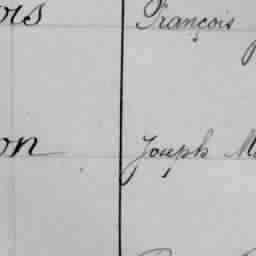 ois François
on Joseph M